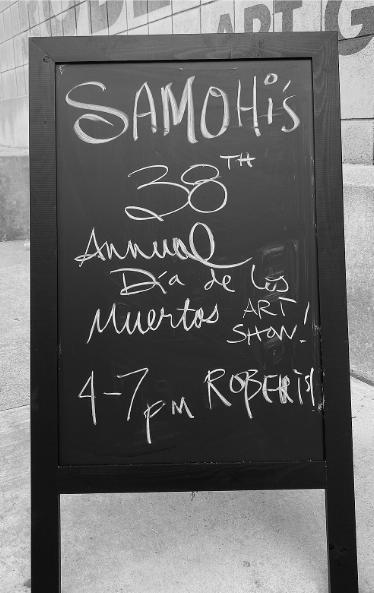 ART G
SAMOHi's
38TH
Annual
Día de los
Muertos ART
SHOW!
4-7pm